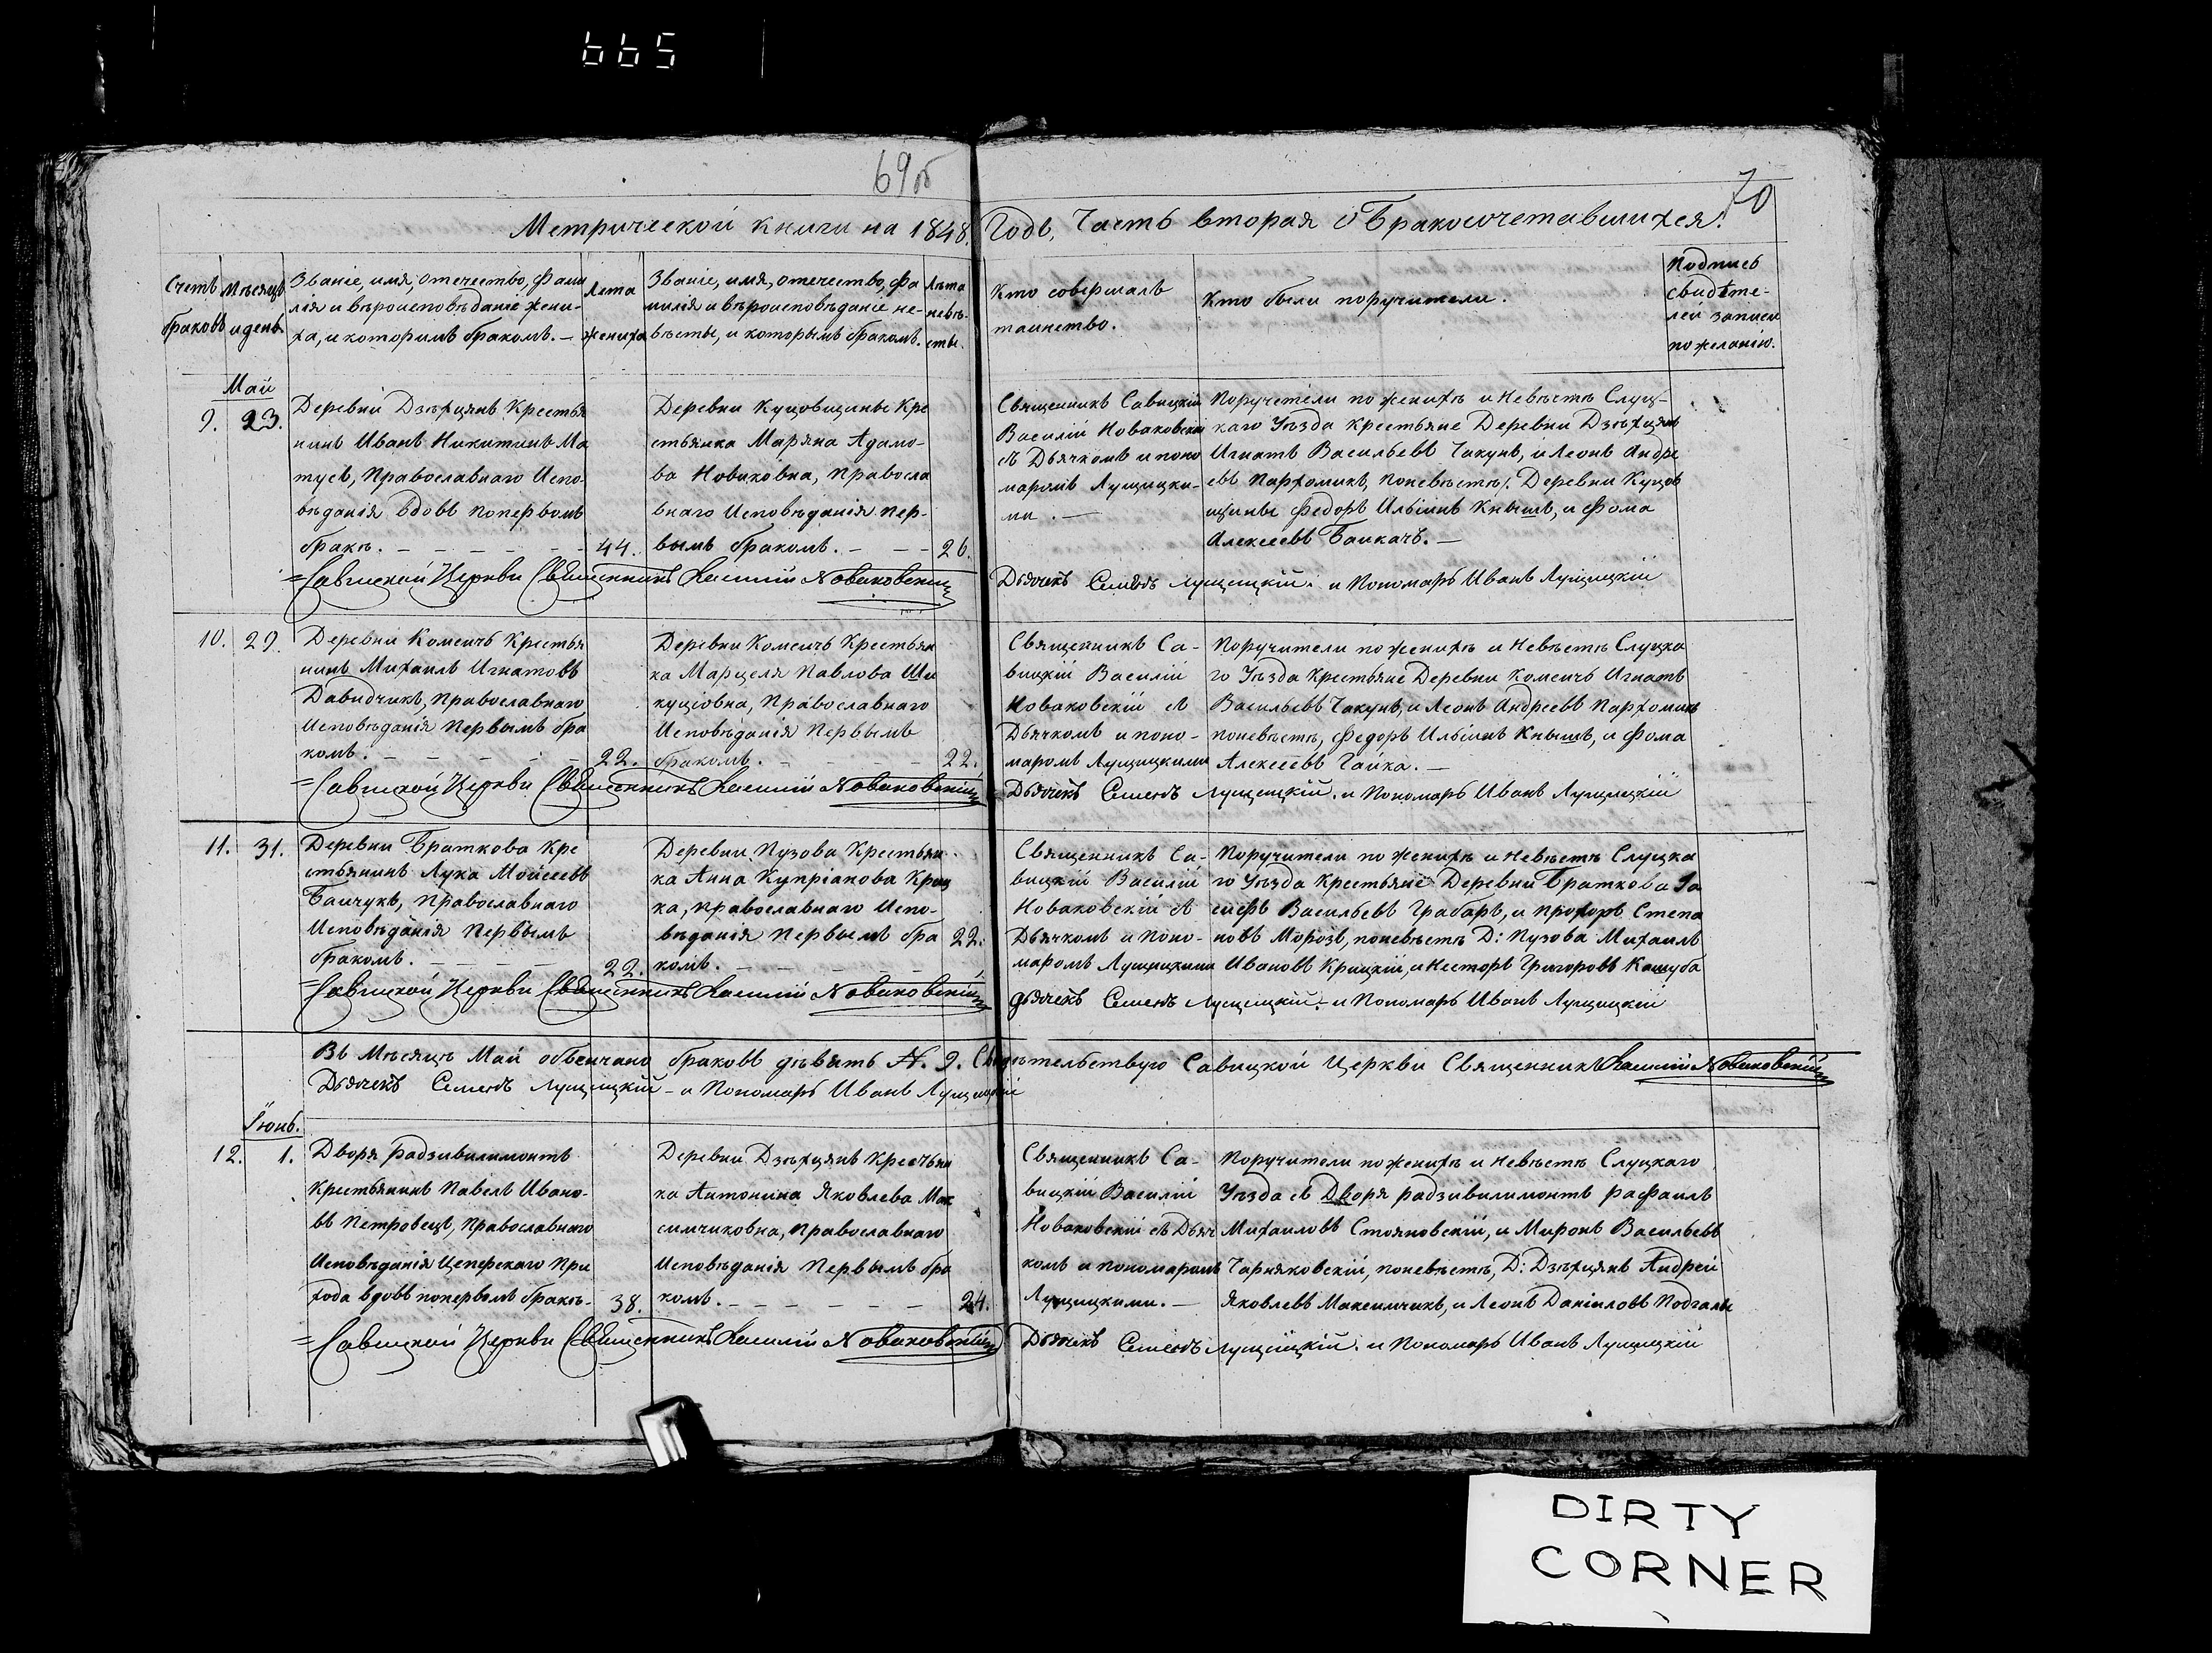 665
69об
70
Метрической книги на 1848. Годъ, Часть вторая о Бракосочетавшихся.
Счетъ браковъ
Мѣсяцъ и день
Званіе, имя, отечество, фами
лія и вѣроисповѣданіе жени-
ха, и которымъ бракомъ. —
Лета
жениха
Званіе, имя, отечество, фа
милія и вѣроисповѣданіе не-
вѣсты, и которымъ бракомъ.
Лѣта
невѣ-
сты.
Кто совершалъ
таинство.
Кто были поручители.
Подпись
свидѣте-
лей записи
по желанію.
Май
9. 23.
Деревни Дзѣхцянъ Крестья
нинъ Иванъ Никитинъ Ма
тусъ, Православнаго Испо-
вѣданія вдовъ поперьвомъ
бракѣ. — — — — — —
44.
Деревни Куцовщины Кре
стьянка Марьяна Адамо-
ва Новиковна, Правосла
внаго Исповѣданія пер-
вымъ бракомъ. — — —
26.
Священникъ Савицкій
Василій Новаковскій
съ Дьячкомъ и поно
маромъ Лущицки-
ми. —
Поручители по женихѣ и Невѣстѣ Слуц-
каго Уѣзда крестьяне Деревни Дзѣхцянъ
Игнатъ Васильевъ Чакунъ, и Леонъ Андре
евъ Пархомикъ, поневѣстѣ, Деревни Куцов
щины Федоръ Ильинъ Кнышъ, и Фома
Алексеевъ Банкачъ. —
=Савицкой Церкви Священникъ Василій Новаковскій
Дьячекъ Семенъ Лущицкій. и Пономарь Иванъ Лущицкій
10. 29.
Деревни Комсичъ Крестья
нинъ Михаилъ Игнатовъ
Давидчикъ, Православнаго
Исповѣданія Первымъ бра
комъ. — — — — —
22.
Деревни Комсичъ Крестьян
ка Марцеля Павлова Ши
куціовна, Православнаго
Исповѣданія Первымъ
бракомъ. — — — —
22.
Священникъ Са-
вицкій Василій
Новаковскій съ
Дьячкомъ и поно-
маромъ Лущицкими
Поручители по женихѣ и Невѣстѣ Слуцка
го Уѣзда Крестьяне Деревни Комсичъ Игнатъ
Васильевъ Чакунъ, и Леонъ Андреевъ Пархомикъ
поневѣстѣ, Федоръ Ильинъ Кнышъ, и Фома
Алексеевъ Гайка. —
=Савицкой Церкви Священникъ Василій Новаковскій
Дьячекъ Семенъ Лущицкій. и Пономарь Иванъ Лущицкій
11. 31.
Деревни Браткова Кре
стьянинъ Лука Мойсеевъ
Банчукъ, Православнаго
Исповѣданія Первымъ
бракомъ. — — — —
22.
Деревни Пузова Крестьян-
ка Анна Купріанова Криц
ка, православнаго Испо-
вѣданія Первымъ бра
комъ. — — — — —
22.
Священникъ Са-
вицкій Василій
Новаковскій съ
Дьячкомъ и Поно-
маромъ Лущицкими
Поручители по женихѣ и Невѣстѣ Слуцка
го Уѣзда Крестьяне Деревни Браткова Іо
сифъ Васильевъ Грабаръ, и Прохоръ Степа
новъ Морозъ, поневѣстѣ Д: Пузова Михаилъ
Ивановъ Крицкій, и Несторъ Григоровъ Кашуба
=Савицкой Церкви Священникъ Василій Новаковскій
Дьячекъ Семенъ Лущицкій. и Пономарь Иванъ Лущицкій
Въ Мѣсяцѣ Май обвенчано браковъ дѣвять №. 9. Свидѣтельствую Савицкой Церкви Священникъ Василій Новаковскій
Дьячекъ Семенъ Лущицкій — и Пономарь Иванъ Лущицкій
Іюнь.
12. 1.
Дворя Радзивилимонтъ
Крестьянинъ Павелъ Ивано-
въ Петровецъ, Православнаго
Исповѣданія Цеперскаго При
хода вдовъ поперьвомъ бракѣ-
38.
Деревни Дзѣхцянъ Крестьян
ка Антонина Яковлева Мак
симчиковна, Православнаго
Исповѣданія Первымъ бра
комъ. — — — — — —
24.
Священникъ Са-
вицкій Василій
Новаковскій съ Дьяч
комъ и пономаромъ
Лущицкими. —
Поручители по женихѣ и Невѣстѣ Слуцкаго
Уѣзда съ Дворя Радзивилимонтъ Рафаилъ
Михаиловъ Стояновскій, и Миронъ Васильевъ
Чарняковскій, поневѣстѣ, Д: Дзѣхцянъ Андрей
Яковлевъ Максимчикъ, и Леонъ Даніиловъ Подгалы
=Савицкой Церкви Священникъ Василій Новаковскій
Дьячекъ Семенъ Лущицкій. и Пономарь Иванъ Лущицкій
DIRTY
CORNER